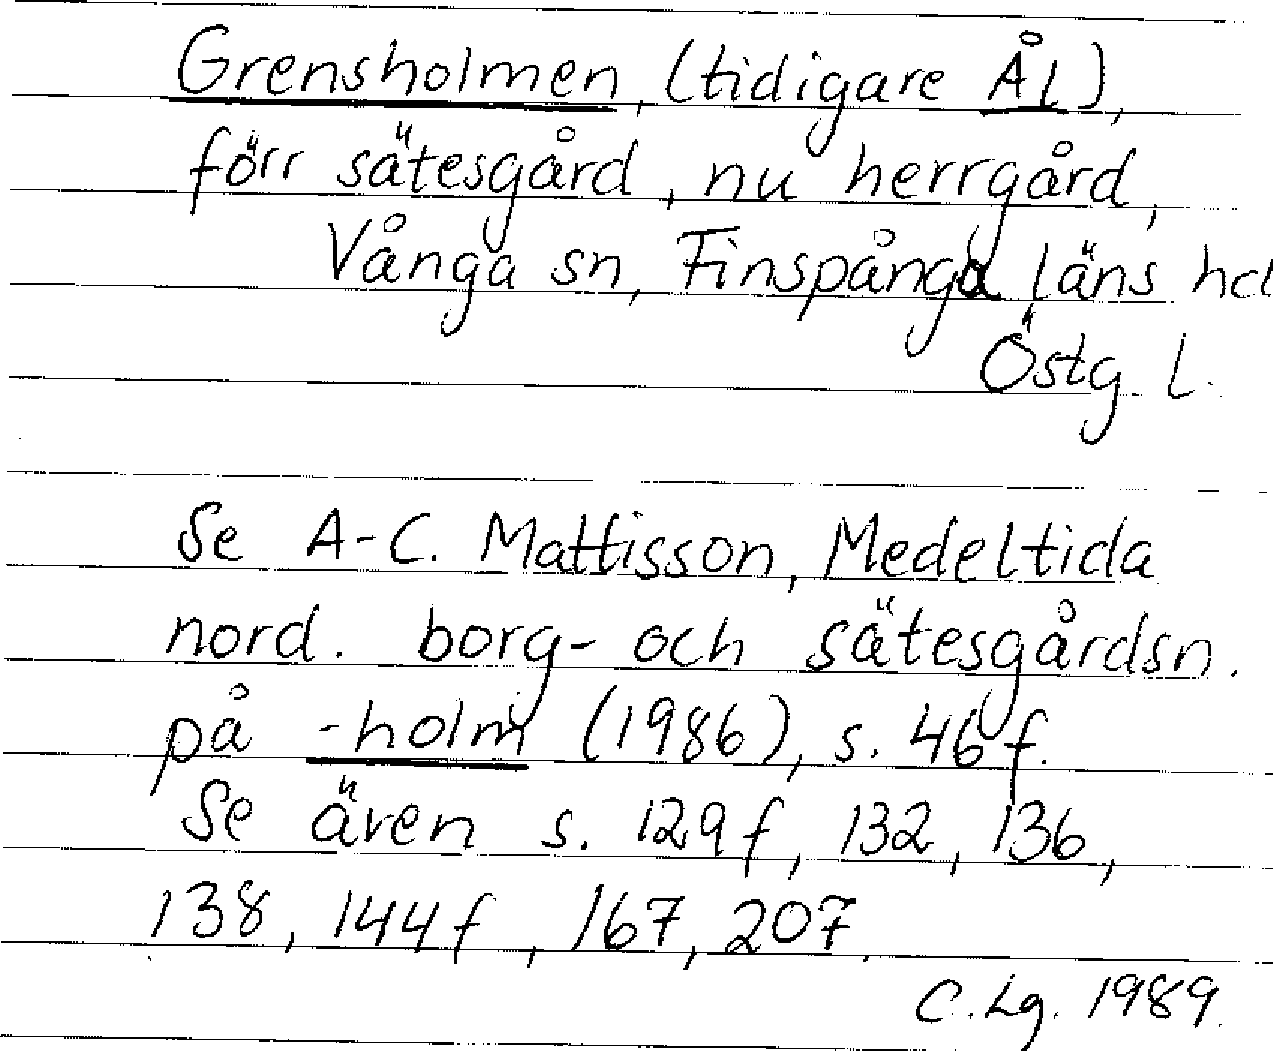 Grensholmen, (tidigare Ål),
förr sätesgård, nu herrgård,
Vånga sn, Finspånga läns hd
Östg. l.
Se A-C. Mattisson, Medeltida
nord. borg- och sätesgårdsn.
på -holm (1986), s. 46f.
Se även s. 129f, 132, 136,
138, 144f, 167, 207.
C.Lg. 1989.